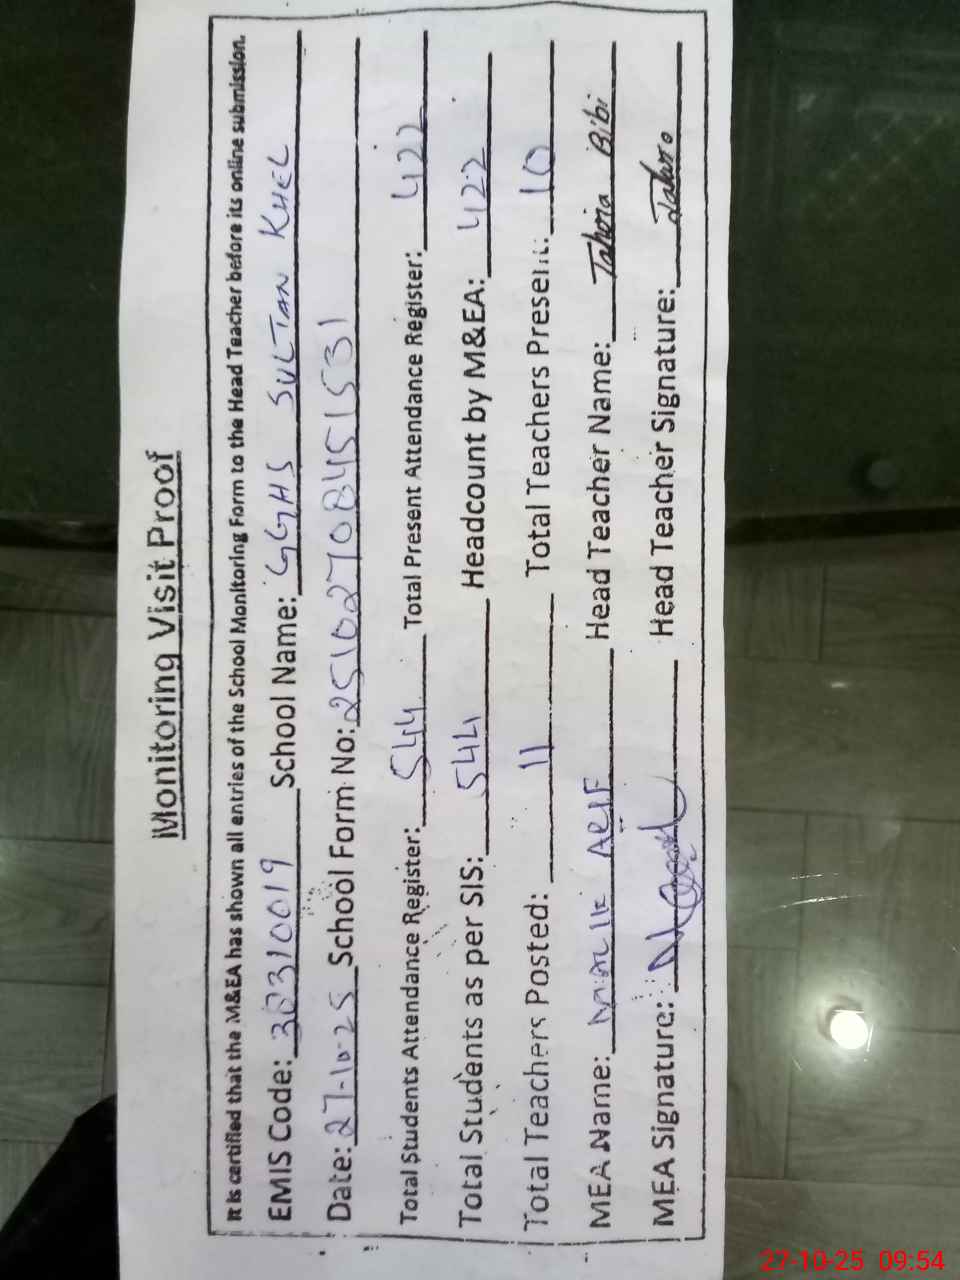 Monitoring Visit Proof
It is certified that the M&EA has shown all entries of the School Monitoring Form to the Head Teacher before its online submission.
EMIS Code: 38310019 School Name: GGHS SULTAN KHEL
Date: 27-10-25 School Form No: 25102708451531
Total Students Attendance Register: 544 Total Present Attendance Register: 422
Total Students as per SIS: 544 Headcount by M&EA: 422
Total Teachers Posted: 11 Total Teachers Present: 10
MEA Name: MALIK ARIF Head Teacher Name: Tahira Bibi
MEA Signature: Head Teacher Signature:
27-10-25 09:54